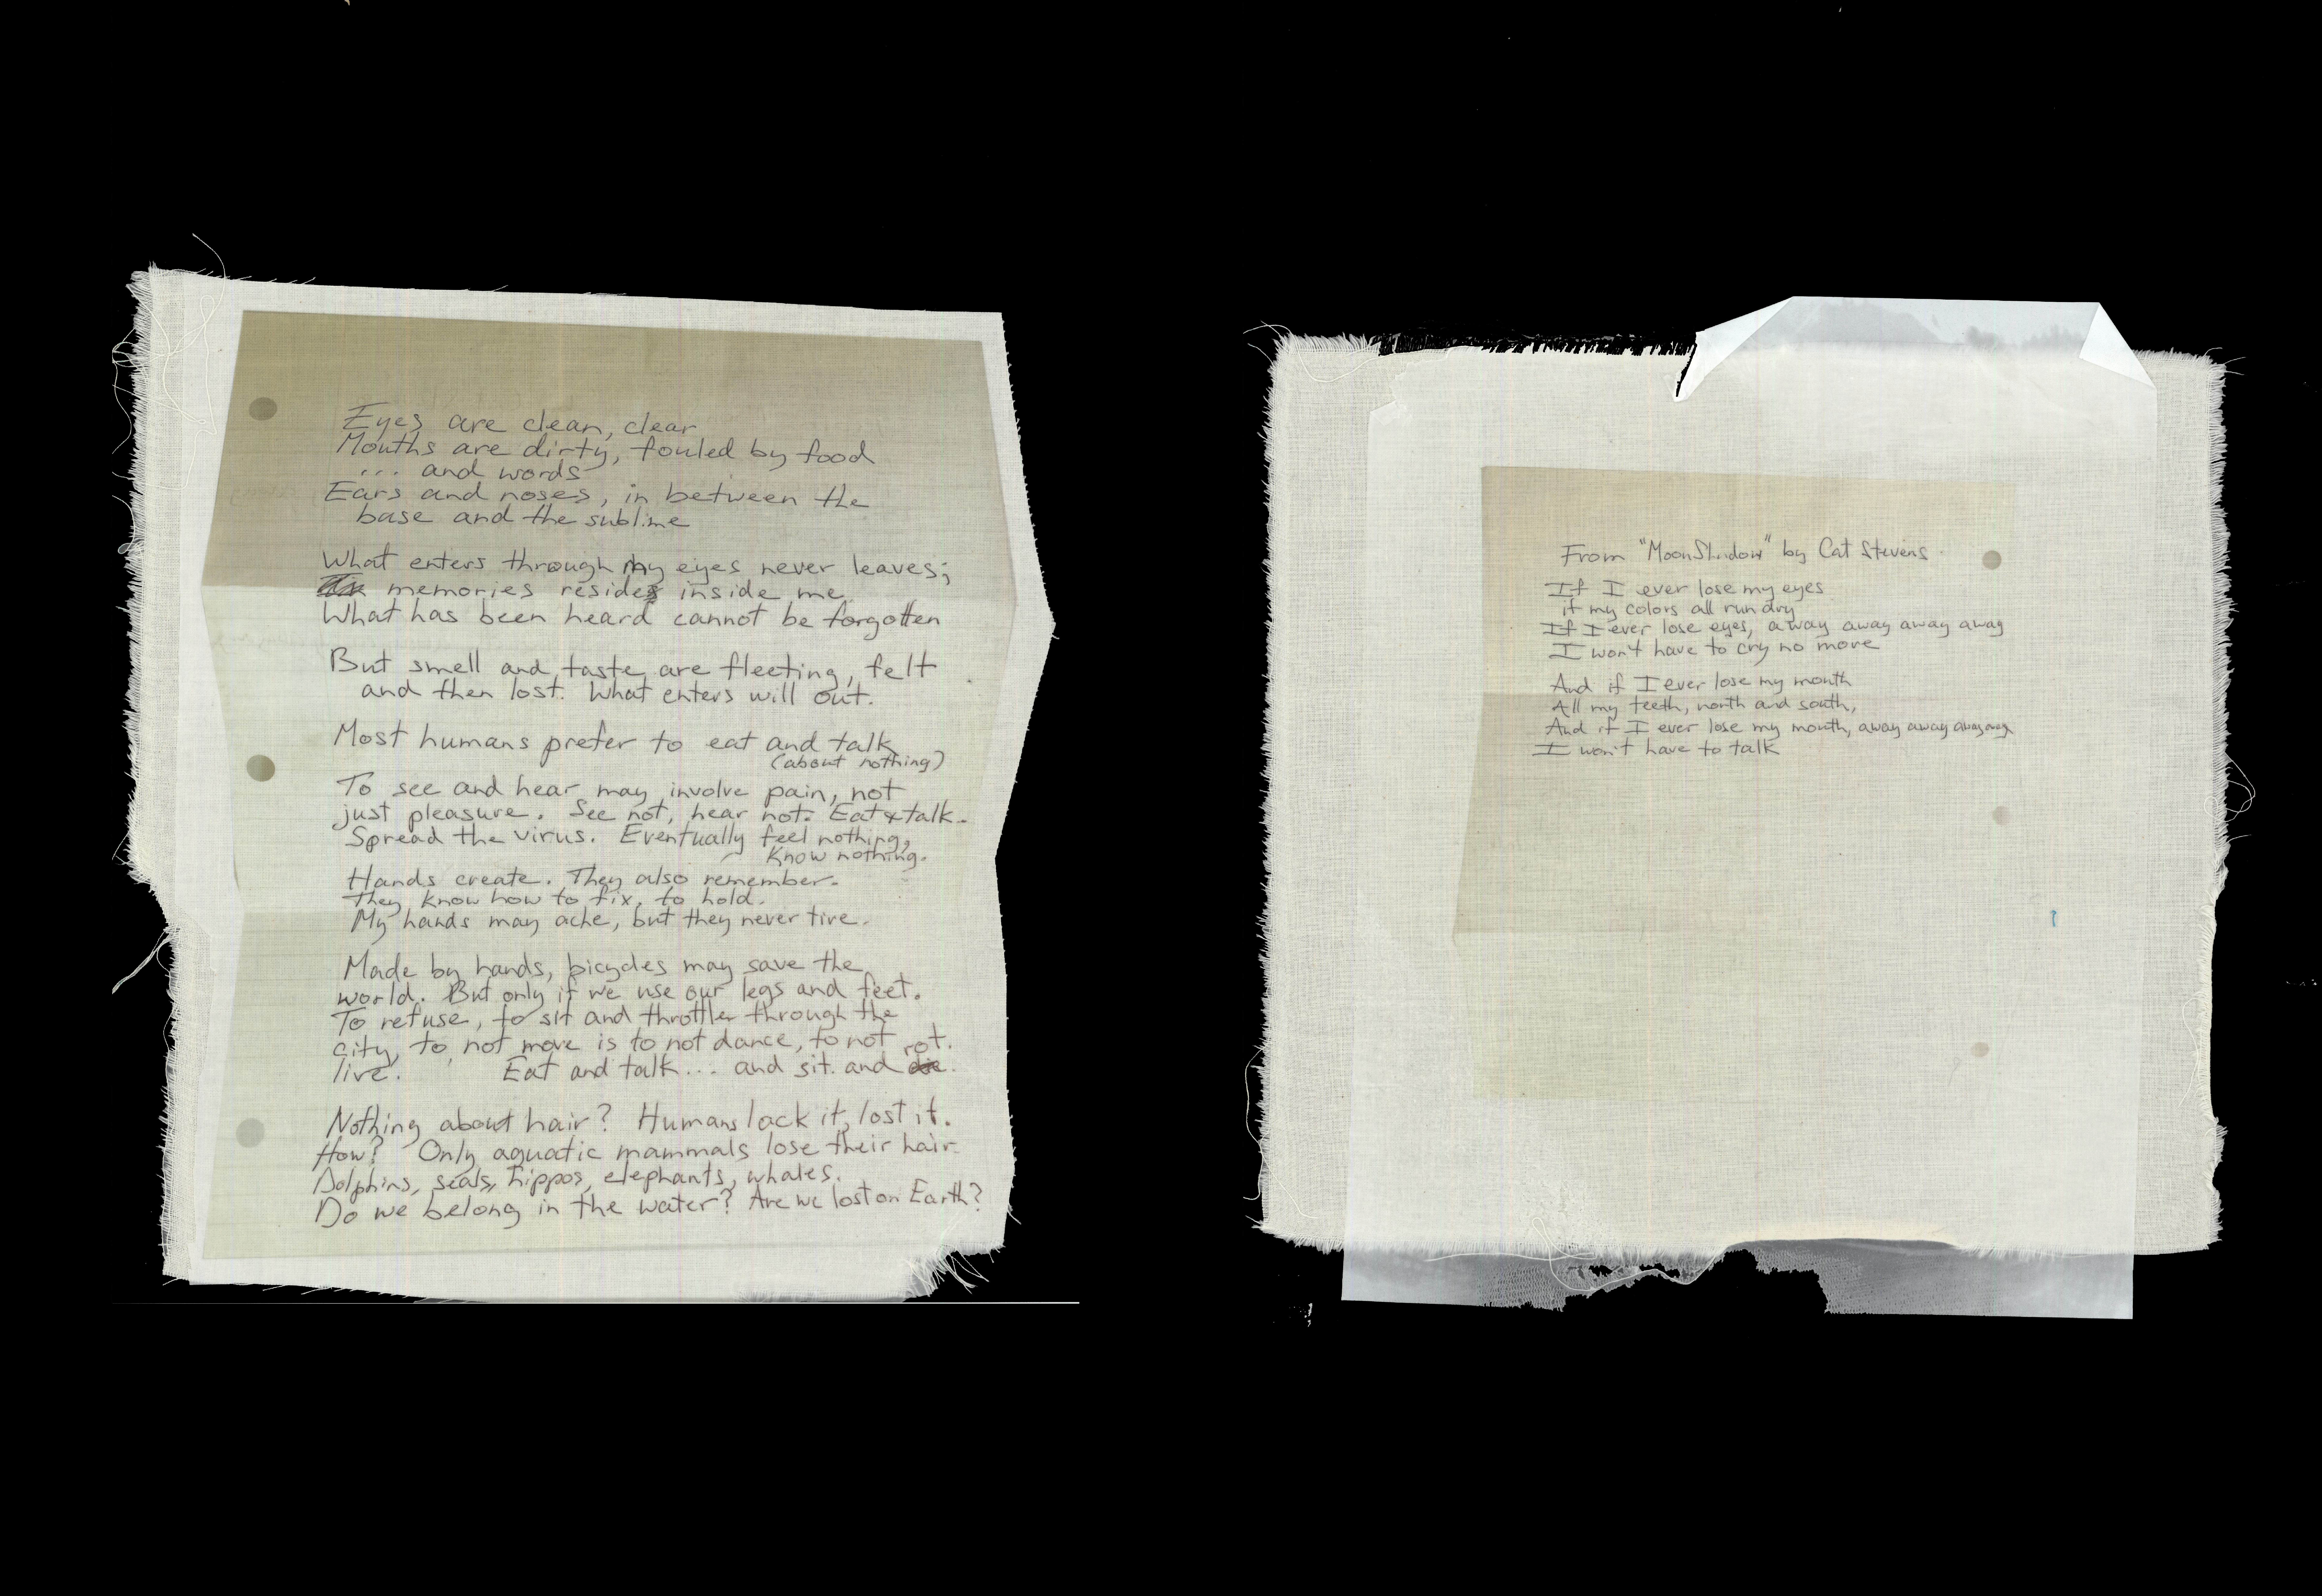 Eyes are clean, clear
Mouths are dirty, fouled by food
... and words
Ears and noses, in between the
base and the sublime
What enters through my eyes never leaves;
memories reside inside me.
What has been heard cannot be forgotten
But smell and taste are fleeting, felt
and then lost. What enters will out.
Most humans prefer to eat and talk
(about nothing)
To see and hear may involve pain, not
just pleasure. See not, hear not. Eat & talk.
Spread the virus. Eventually feel nothing,
Know nothing.
Hands create. They also remember.
They know how to fix, to hold.
My hands may ache, but they never tire.
Made by hands, bicycles may save the
world. But only if we use our legs and feet.
To refuse, to sit and throttle through the
city, to not move is to not dance, to not
live. Eat and talk... and sit. and rot.
Nothing about hair? Humans lack it, lost it.
How? Only aquatic mammals lose their hair.
Dolphins, seals, hippos, elephants, whales.
Do we belong in the water? Are we lost on Earth?
From "MoonShadow" by Cat Stevens
If I ever lose my eyes
if my colors all run dry
If I ever lose eyes, away away away away
I won't have to cry no more
And if I ever lose my mouth
All my teeth, north and south,
And if I ever lose my mouth, away away away away
I won't have to talk